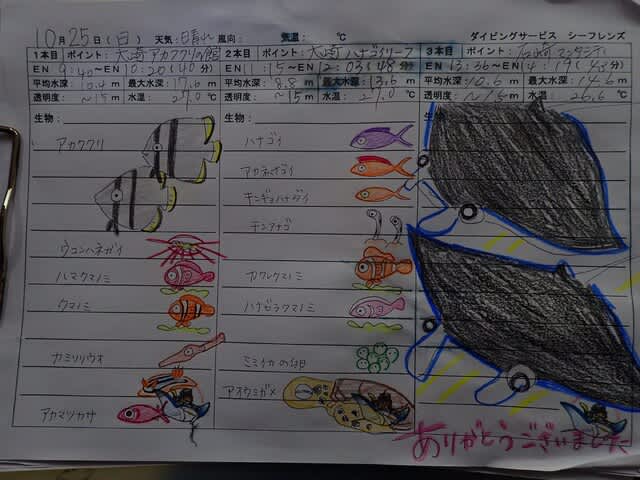 10月25日(日) 天気: 晴れ 風向: 気温: ℃ ダイビングサービス シーフレンズ
1本目 ポイント: 大崎アカククリの館
EN 9:40〜EN 10:20(40分)
平均水深: 10.4 m 最大水深: 17.6 m
透明度: 〜15 m 水温: 27.0 ℃
生物:
アカククリ
ウコンハネガイ
ハマクマノミ
クマノミ
カミソリウオ
アカマツカサ
2本目 ポイント: 大崎ハナゴイリーフ
EN 11:15〜EN 12:03(48分)
平均水深: 8.8 m 最大水深: 13.6 m
透明度: 〜15 m 水温: 27.0 ℃
生物:
ハナゴイ
アカネハナゴイ
キンギョハナダイ
チンアナゴ
カクレクマノミ
ハナビラクマノミ
ミミイカの卵
アオウミガメ
3本目 ポイント: 石崎マンタシティ
EN 13:36〜EN 14:19(43分)
平均水深: 10.6 m 最大水深: 14.6 m
透明度: 〜15 m 水温: 26.6 ℃
生物:
ありがとうございました